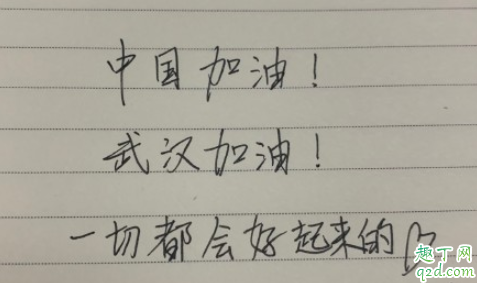 中国加油！
武汉加油！
一切都会好起来的
趣丁网
q2d.com